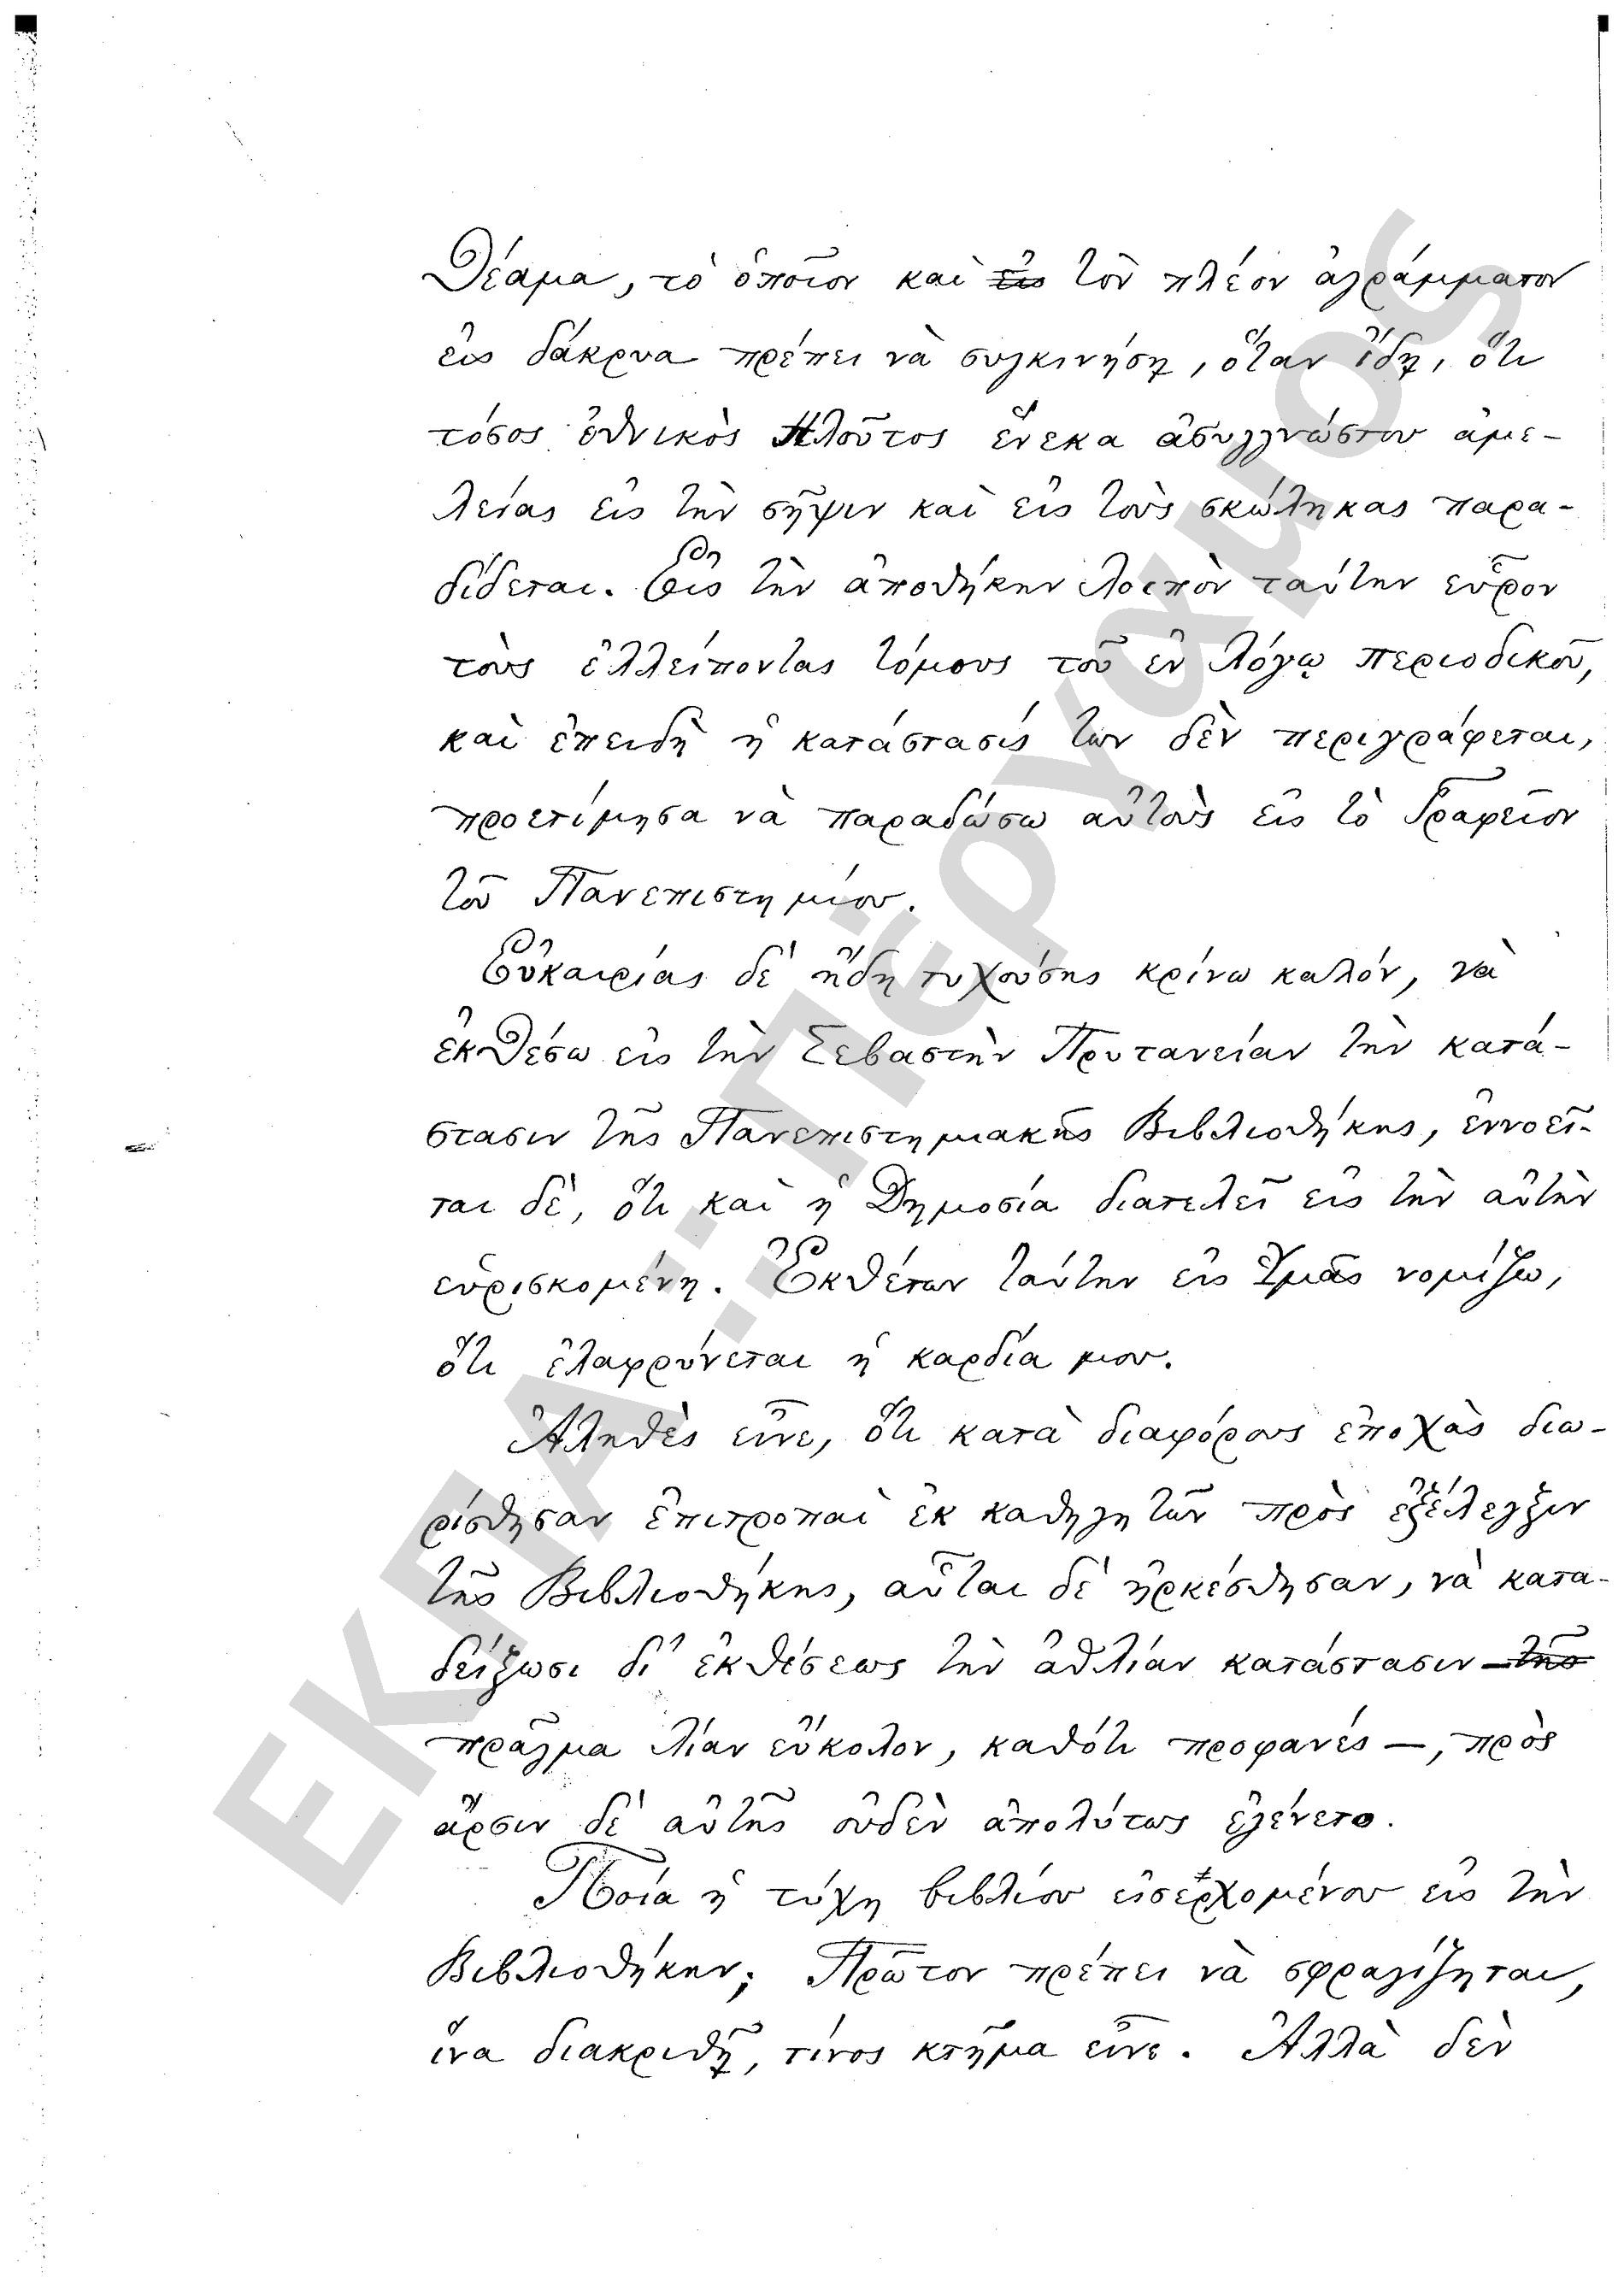 Θέαμα, τὸ ὁποῖον καὶ εἰς τὸν πλέον ἀγράμματον
εἰς δάκρυα πρέπει νὰ συγκινήσῃ, ὅταν ἴδῃ, ὅτι
τόσος ἐθνικὸς πλοῦτος ἕνεκα ἀσυγγνώστου ἀμε-
λείας εἰς τὴν σῆψιν καὶ εἰς τοὺς σκώληκας παρα-
δίδεται. Εἰς τὴν ἀποθήκην λοιπὸν ταύτην εὗρον
τοὺς ἐλλείποντας τόμους τοῦ ἐν λόγῳ περιοδικοῦ,
καὶ ἐπειδὴ ἡ κατάστασίς των δὲν περιγράφεται,
προετίμησα νὰ παραδώσω αὐτοὺς εἰς τὸ Γραφεῖον
τοῦ Πανεπιστημίου.
Εὐκαιρίας δὲ ἤδη τυχούσης κρίνω καλόν, νὰ
ἐκθέσω εἰς τὴν Σεβαστὴν Πρυτανείαν τὴν κατά-
στασιν τῆς Πανεπιστημιακῆς Βιβλιοθήκης, ἐννοεῖ-
ται δὲ, ὅτι καὶ ἡ Δημοσία διατελεῖ εἰς τὴν αὐτὴν
εὑρισκομένη. Ἐκθέτων ταύτην εἰς Ὑμᾶς νομίζω,
ὅτι ἐλαφρύνεται ἡ καρδία μου.
Ἀληθὲς εἶνε, ὅτι κατὰ διαφόρους ἐποχὰς διω-
ρίσθησαν ἐπιτροπαὶ ἐκ καθηγητῶν πρὸς ἐξέλεγξιν
τῆς Βιβλιοθήκης, αὗται δὲ ἠρκέσθησαν, νὰ κατα-
δείξωσι δι' ἐκθέσεως τὴν ἀθλίαν κατάστασιν — τῆς
πρᾶγμα λίαν εὔκολον, καθότι προφανές —, πρὸς
ἄρσιν δὲ αὐτῆς οὐδὲν ἀπολύτως ἐγένετο.
Ποία ἡ τύχη βιβλίου εἰσερχομένου εἰς τὴν
Βιβλιοθήκην; Πρῶτον πρέπει νὰ σφραγίζηται,
ἵνα διακριθῇ, τίνος κτῆμα εἶνε. Ἀλλὰ δὲν
ΕΚΠΑ-Πέργαμος